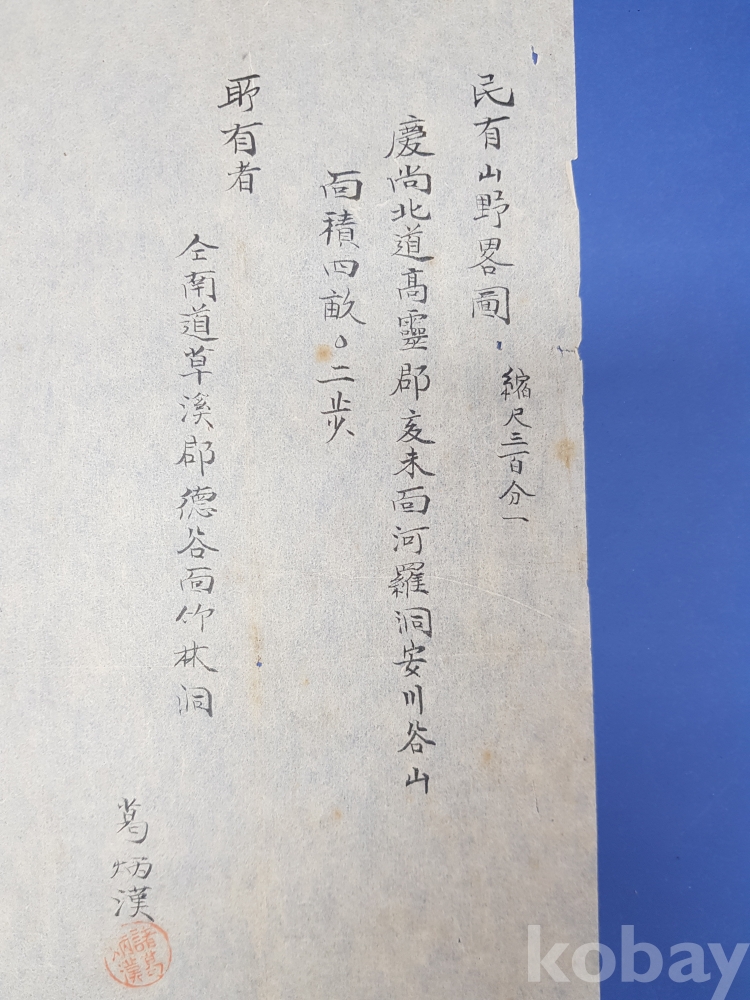 民有山野畧圖
縮尺三百分一
慶尚北道髙靈郡亥未面河羅洞安川谷山
面積四畝〇二步
所有者
仝南道草溪郡德谷面竹林洞
葛炳漢
諸葛炳漢
kobay